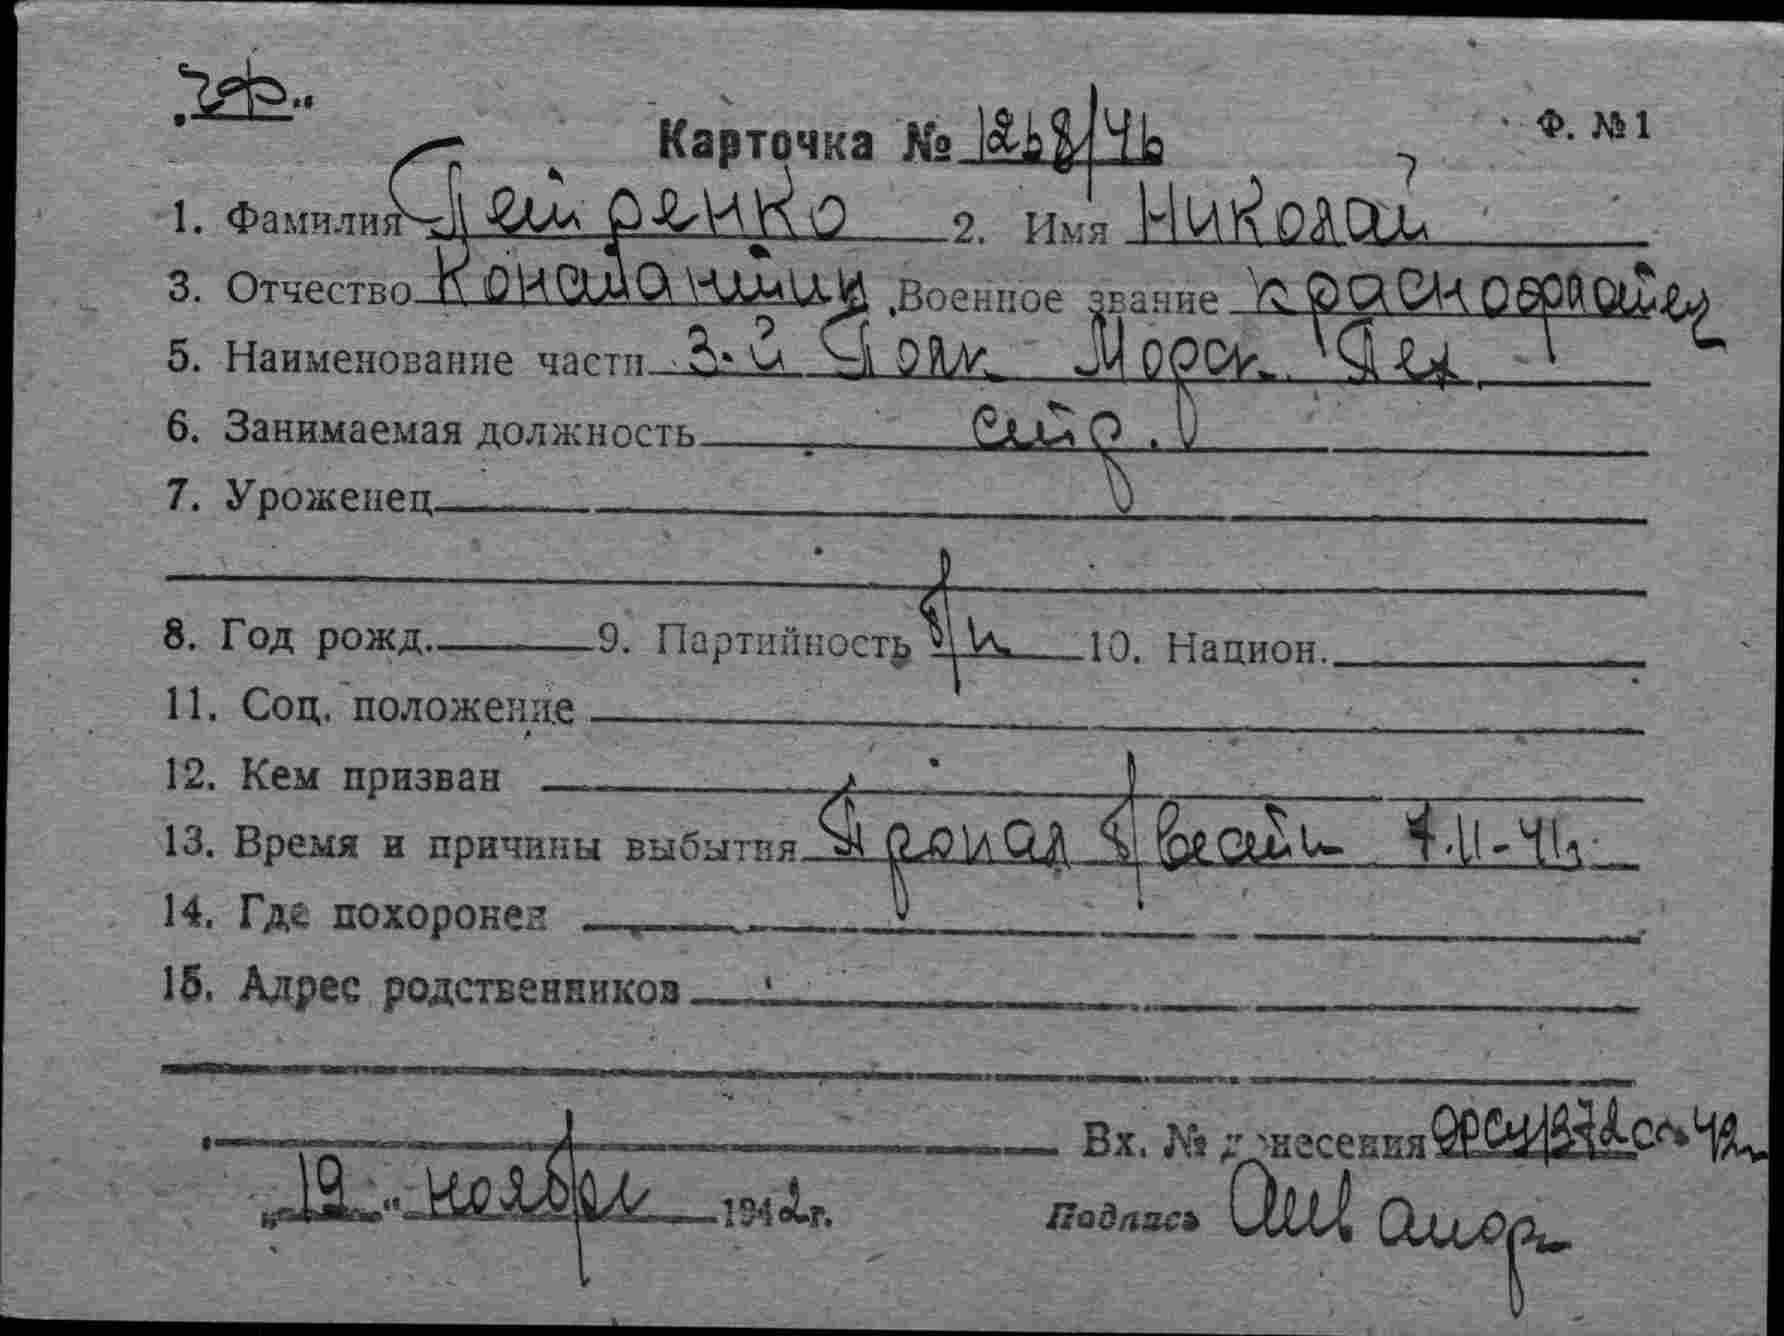 „ЧФ"
Карточка № 1268/46 Ф. № 1
1. Фамилия Петренко 2. Имя Николай
3. Отчество Константин Военное звание краснофлотец
5. Наименование части 3-й Полк Морск. Пех.
6. Занимаемая должность стр.
7. Уроженец
8. Год рожд. 9. Партийность б/п 10. Национ.
11. Соц. положение
12. Кем призван
13. Время и причины выбытия Пропал б/вести 7.11-41г.
14. Где похоронен
15. Адрес родственников
Вх. № донесения 1372 42г
„19" ноября 1942 г. Подпись